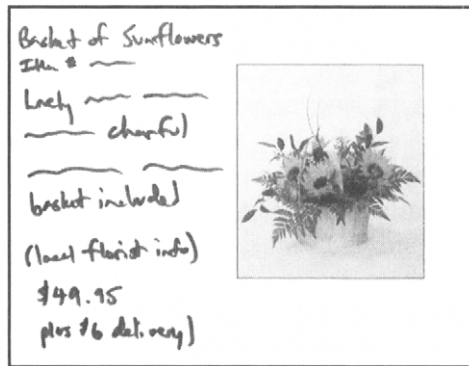 Basket of Sunflowers
Item #
Lovely
cheerful
basket included
(local florist info)
$49.95
plus $6 delivery)